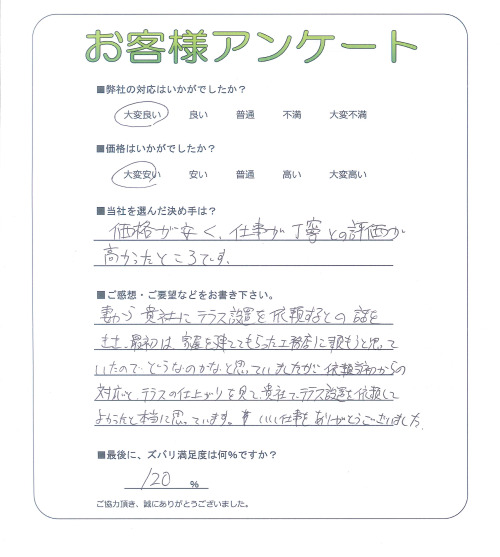 お客様アンケート
■弊社の対応はいかがでしたか？
大変良い 良い 普通 不満 大変不満
■価格はいかがでしたか？
大変安い 安い 普通 高い 大変高い
■当社を選んだ決め手は？
価格が安く、仕事が丁寧との評価が
高かったところです。
■ご感想・ご要望などをお書き下さい。
妻から貴社にテラス設置を依頼するとの話を
きき、最初は家屋を建ててもらった工務店に頼もうと思って
いたので、どうなのかなと思っていましたが、依頼当初からの
対応と、テラスの仕上がりを見て、貴社でテラス設置を依頼して
よかったと本当に思っています。いい仕事をありがとうございました。
■最後に、ズバリ満足度は何%ですか？
120 %
ご協力頂き、誠にありがとうございました。